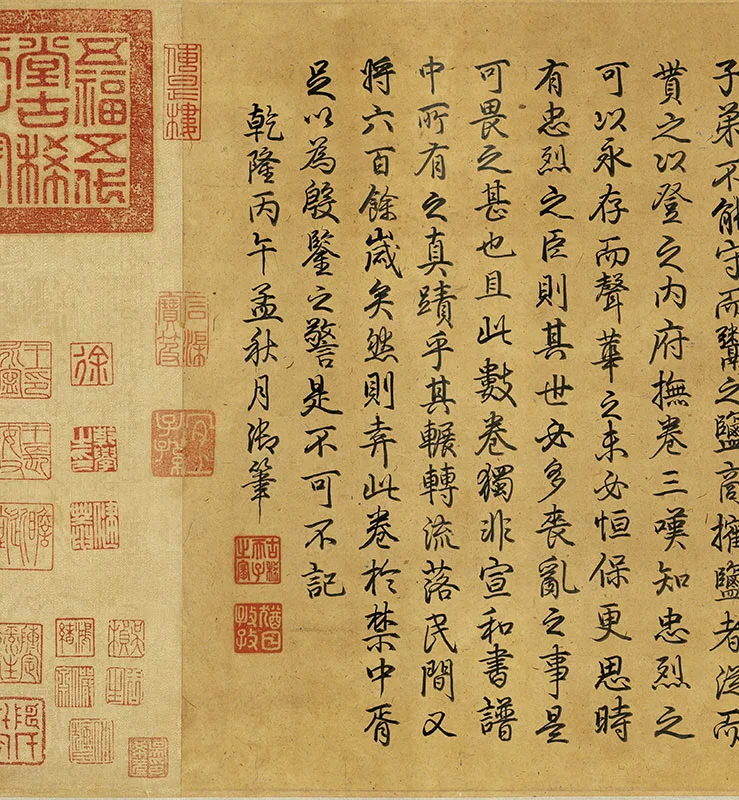 子弟不能守而鬻之鹽商擁鹽者從而
貢之以登之内府撫卷三嘆知忠烈之
可以永存而聲華之未必恒保更思時
有忠烈之臣則其世必多喪亂之事是
可畏之甚也且此數卷獨非宣和書譜
中所有之真蹟乎其輾轉流落民間又
將六百餘嵗矣然則弆此卷於禁中胥
足以為殷鑒之警是不可不記
乾隆丙午孟秋月御筆
古稀天子之寶
猶日孜孜
傳是樓
宜子孫
五福五代
堂古稀
徐